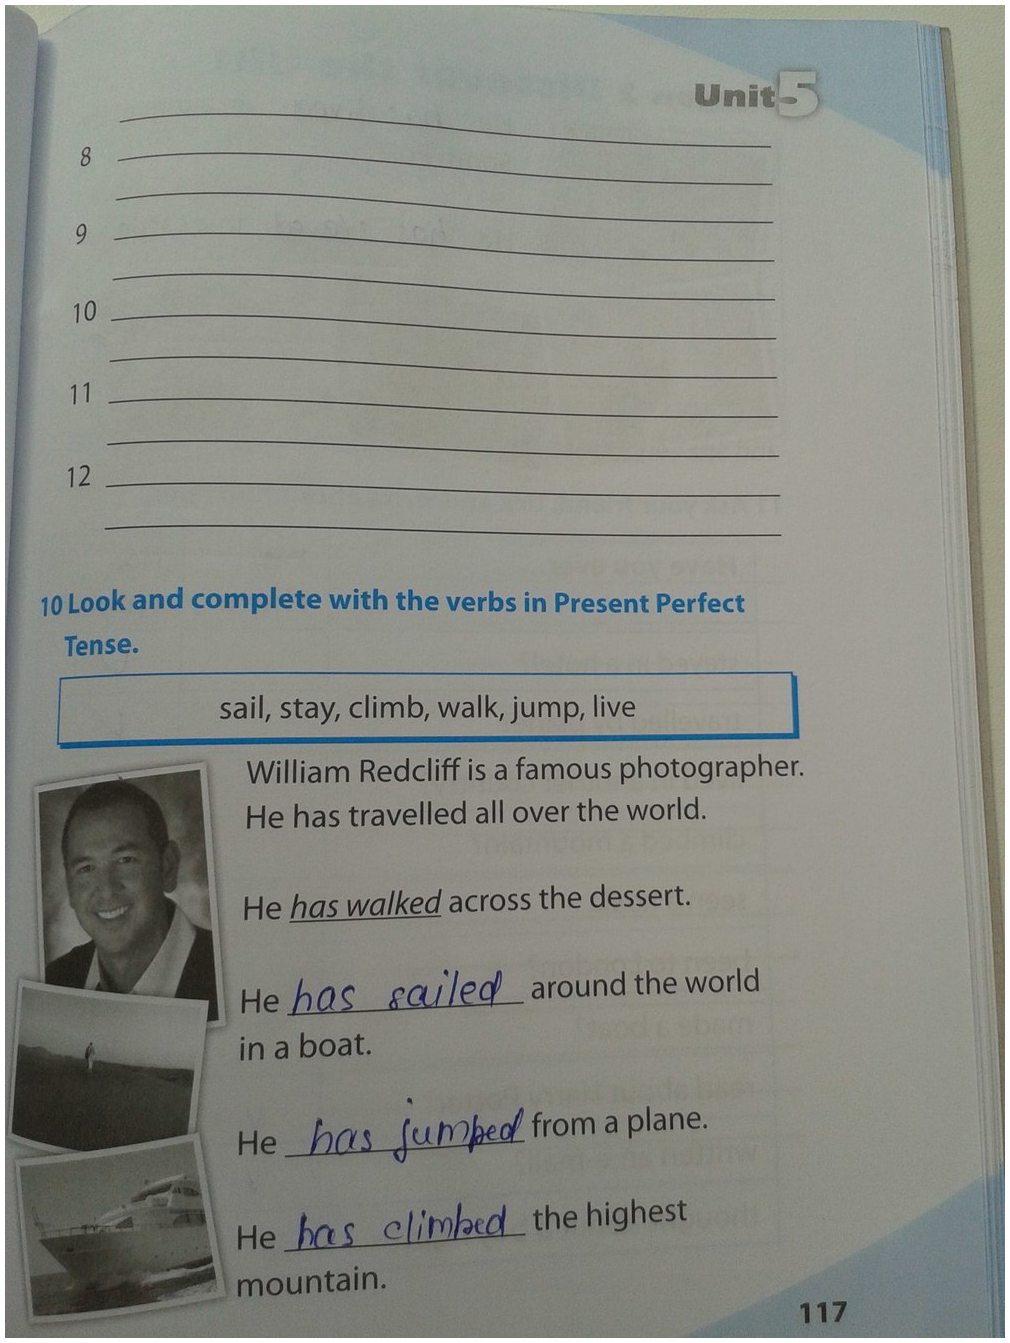 Unit 5
8
9
10
11
12
10 Look and complete with the verbs in Present Perfect
Tense.
sail, stay, climb, walk, jump, live
William Redcliff is a famous photographer.
He has travelled all over the world.
He has walked across the dessert.
He has sailed around the world
in a boat.
He has jumped from a plane.
He has climbed the highest
mountain.
117